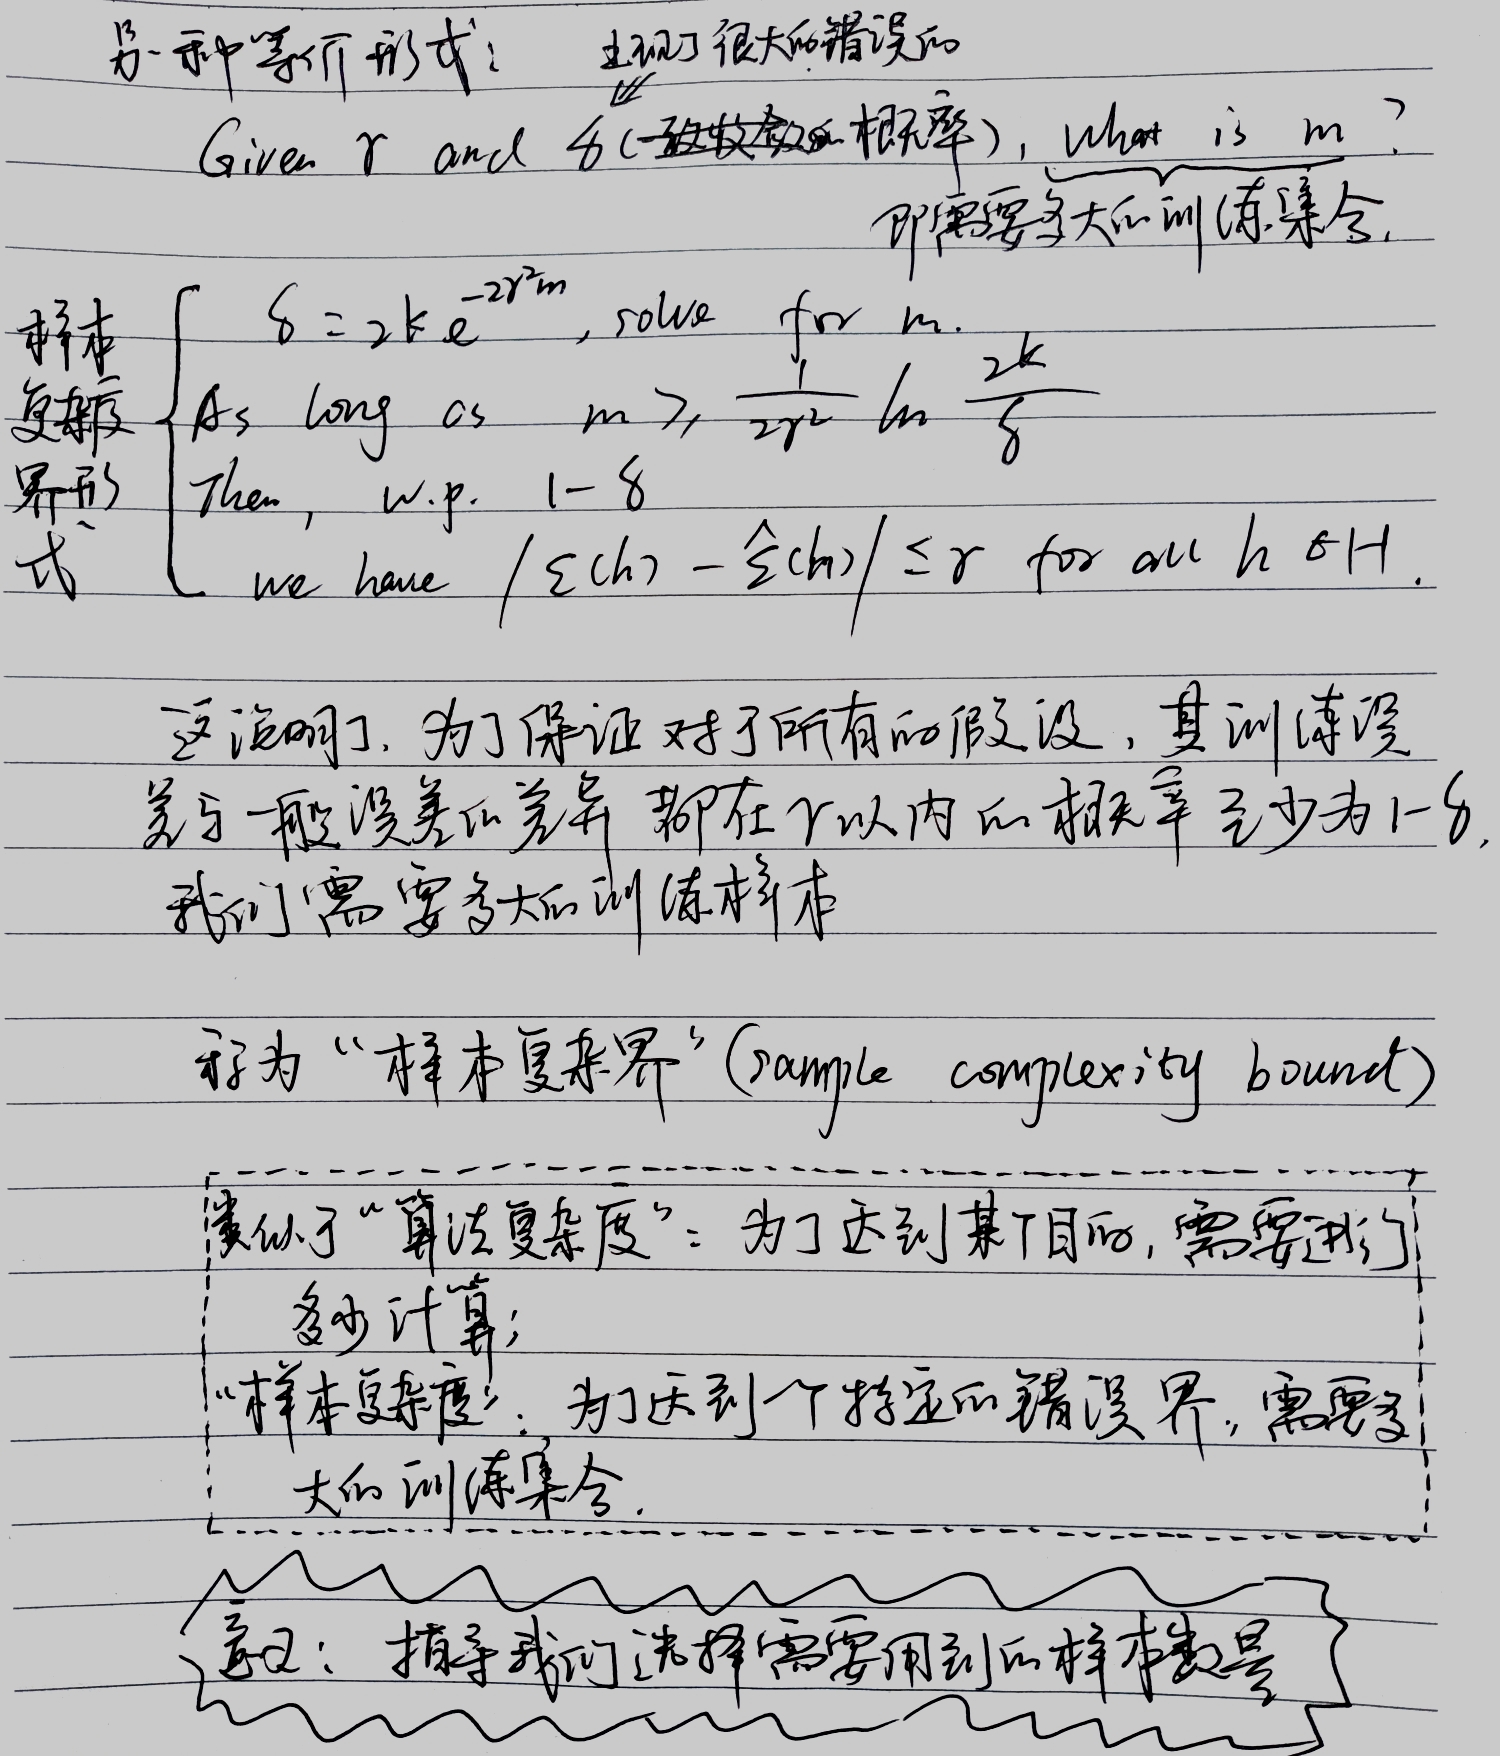 另一种等价形式: 出现了很大的错误的
Given γ and δ (一致收敛的概率), what is m?
即需要多大的训练集合.
样本复杂度界形式
δ = 2k e^{-2γ²m}, solve for m.
As long as m ≥ \frac{1}{2γ²} ln \frac{2k}{δ}
Then, w.p. 1-δ
we have |ε(h) - ε̂(h)| ≤ γ for all h ∈ H.
这说明了, 为了保证对于所有的假设, 其训练误
差与一般误差的差异都在γ以内的概率至少为1-δ,
我们需要多大的训练样本
称为“样本复杂界”(sample complexity bound)
类似于“算法复杂度”: 为了达到某个目的, 需要进行
多少计算;
“样本复杂度”: 为了达到一个特定的错误界, 需要多
大的训练集合.
意义: 指导我们选择需要用到的样本数量